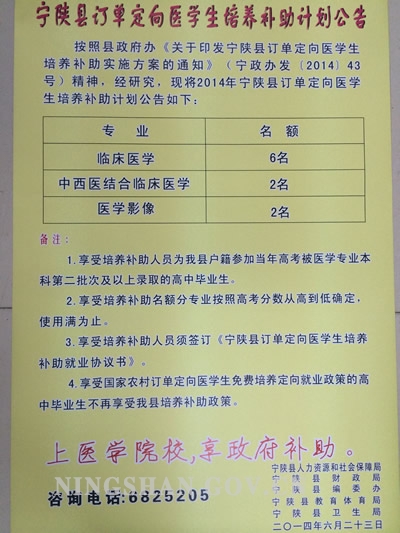 宁陕县订单定向医学生培养补助计划公告
按照县政府办《关于印发宁陕县订单定向医学生
培养补助实施方案的通知》（宁政办发〔2014〕43
号）精神，经研究，现将2014年宁陕县订单定向医学
生培养补助计划公告如下：
专 业 名 额
临床医学 6名
中西医结合临床医学 2名
医学影像 2名
备注：
1.享受培养补助人员为我县户籍参加当年高考被医学专业本
科第二批次及以上录取的高中毕业生。
2.享受培养补助名额分专业按照高考分数从高到低确定，
使用满为止。
3.享受培养补助人员须签订《宁陕县订单定向医学生培养
补助就业协议书》。
4.享受国家农村订单定向医学生免费培养定向就业政策的高
中毕业生不再享受我县培养补助政策。
上医学院校，享政府补助。
宁陕县人力资源和社会保障局
宁 陕 县 财 政 局
宁 陕 县 编 委 办
宁 陕 县 教 育 体 育 局
宁 陕 县 卫 生 局
二〇一四年六月二十三日
咨询电话:6825205
NINGSHAN.GOV